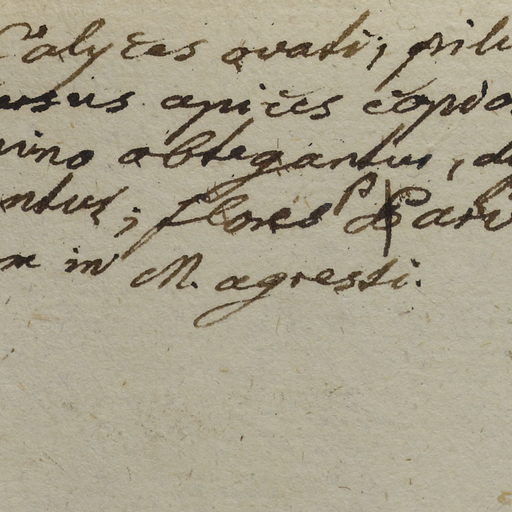 Calyces ovati; pilu
usus apices copio
vino obtegantur, d
ntur; flores
m in M. agresti.